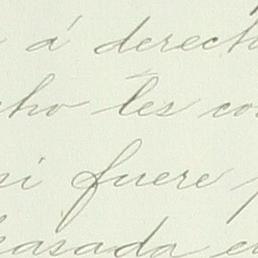 á derecho
cho les co
si fuere p
casada e